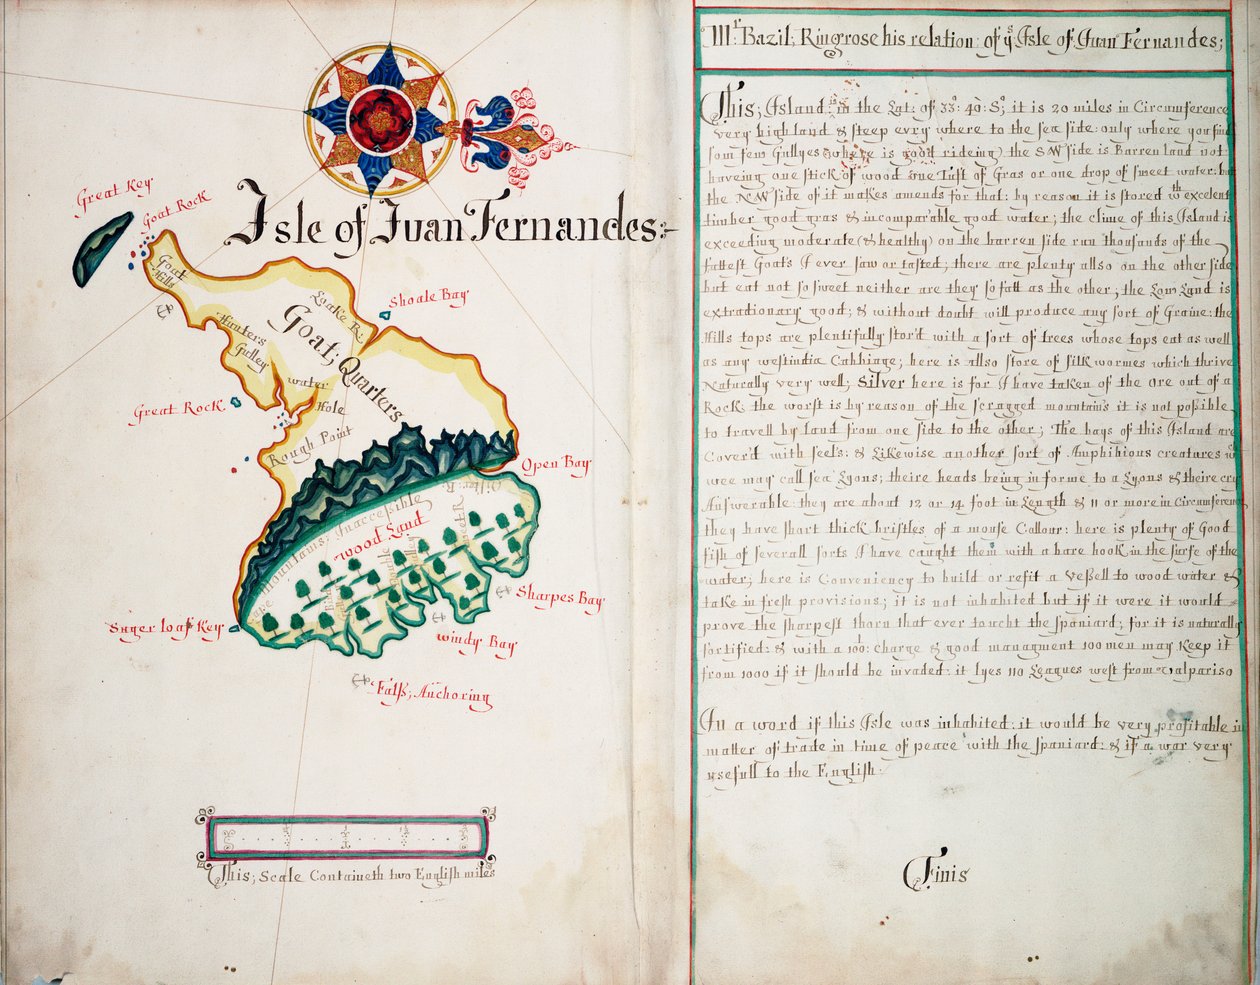 Great Key
Goat Rock
Isle of Juan Fernandes:
Goat
Hills
Loake R.
Shoale Bay
Goat; Quarters
Hunters
Gulley
water
Hole
Great Rock
Rough Point
Open Bay
mountains Inaccessible
wood Land
Sharpes Bay
Suger loaf Key
windy Bay
Falss; Anchoring
This; Scale Containeth two English miles
Mr. Bazil; Ringrose his relation: of ye Isle of Juan Fernandes;
This; Island is in the Lat: of 33°: 40: S°; it is 20 miles in Circumference
very high land & steep evry where to the sea side: only where you find
som few Gullyes (where is good rideing) the SW side is Barren land not
haveing one stick of wood one Tust of Gras or one drop of sweet water: but
the NW side of it makes amends for that: by reason it is stored wth excelent
timber good gras & incomparable good water; the clime of this Island is
exceeding moderate (& healthy) on the barren side run thousands of the
fattest Goats I ever saw or tasted; there are plenty allso on the other side
but eat not so sweet neither are they so fatt as the other; the Low Land is
extradionary good; & without doubt will produce any sort of Graine: the
Hills tops are plentifully stor'd with a sort of trees whose tops eat as well
as any westindia Cabbiage; here is allso store of silk wormes which thrive
Naturally very well; Silver here is for I have taken of the ore out of a
Rock the worst is by reason of the scragged mountains it is not possible
to travell by land from one side to the other; The bays of this Island are
Cover'd with seels: & Likewise another sort of Amphibious creatures w
wee may call sea Lyons; theire heads being in forme to a Lyons & theire cry
Answerable: they are about 12 or 14 foot in Length & 11 or more in Circumferenc
they have short thick bristles of a mouse Callour: here is plenty of Good
fish of severall sorts I have caught them with a bare hook in the surfe of the
water; here is Conveniency to build or refit a Vessell to wood water &
take in fresh provisions; it is not inhabited but if it were it would
prove the sharpest thorn that ever toucht the spaniard; for it is naturally
fortified: & with a 10lb: charge & good managment 100 men may keep it
from 1000 if it should be invaded: it lyes 110 Leagues west from valpariso
In a word if this Isle was inhabited: it would be very profitable in
matter of trade in time of peace with the spaniard: & if a war very
usefull to the English.
Finis